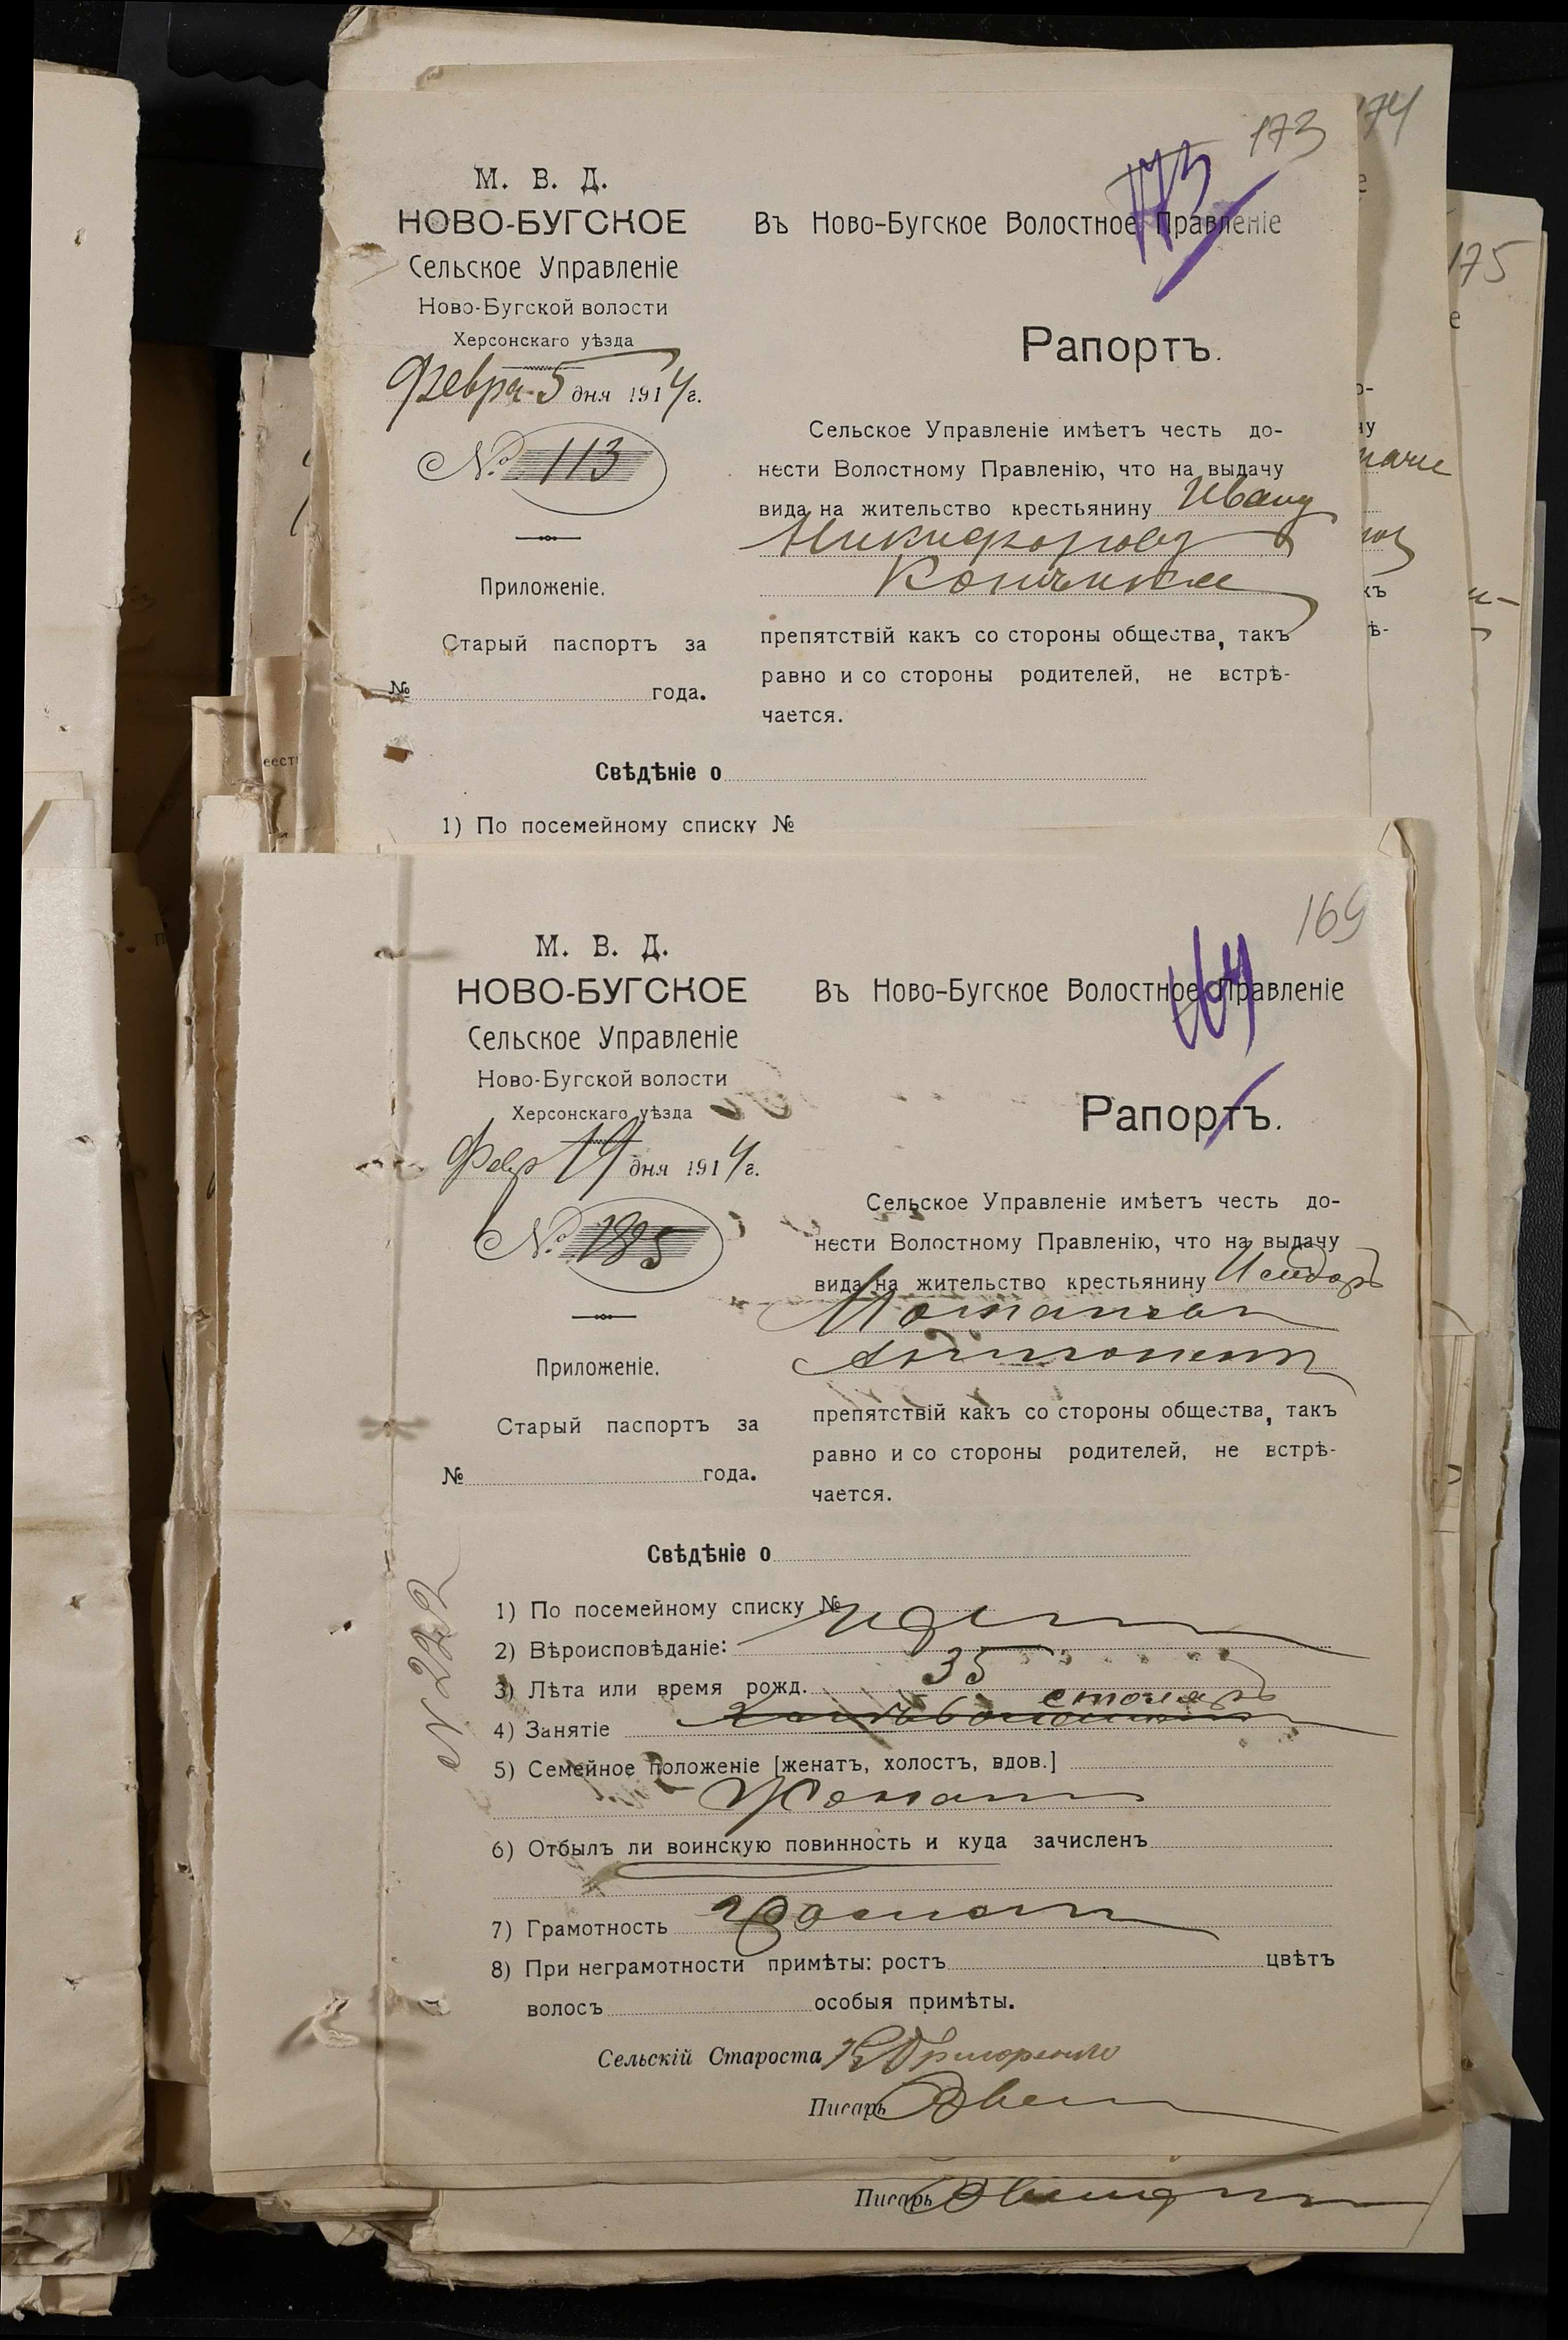 173
174
173
М. В. Д.
НОВО-БУГСКОЕ
Сельское Управленіе
Ново-Бугской волости
Херсонскаго уѣзда
Февр. 5 дня 1914 г.
№ 113
Приложеніе.
Старый паспортъ за
№ года.
Въ Ново-Бугское Волостное Правленіе
Рапортъ.
Сельское Управленіе имѣетъ честь до-
нести Волостному Правленію, что на выдачу
вида на жительство крестьянину Ивану
Никифорову
препятствій какъ со стороны общества, такъ
равно и со стороны родителей, не встрѣ-
чается.
Свѣдѣніе о
1) По посемейному списку №
175
169
М. В. Д.
НОВО-БУГСКОЕ
Сельское Управленіе
Ново-Бугской волости
Херсонскаго уѣзда
Февр 19 дня 1914 г.
№ 185
Приложеніе.
Старый паспортъ за
№ года.
Въ Ново-Бугское Волостное Правленіе
Рапортъ.
Сельское Управленіе имѣетъ честь до-
нести Волостному Правленію, что на выдачу
вида на жительство крестьянину
препятствій какъ со стороны общества, такъ
равно и со стороны родителей, не встрѣ-
чается.
Свѣдѣніе о
1) По посемейному списку №
2) Вѣроисповѣданіе:
3) Лѣта или время рожд. 35
столяръ
4) Занятіе
5) Семейное положеніе [женатъ, холостъ, вдов.]
Женат
6) Отбылъ ли воинскую повинность и куда зачисленъ
7) Грамотность
8) При неграмотности примѣты: ростъ цвѣтъ
волосъ особыя примѣты.
Сельскій Староста
Писарь
Писарь